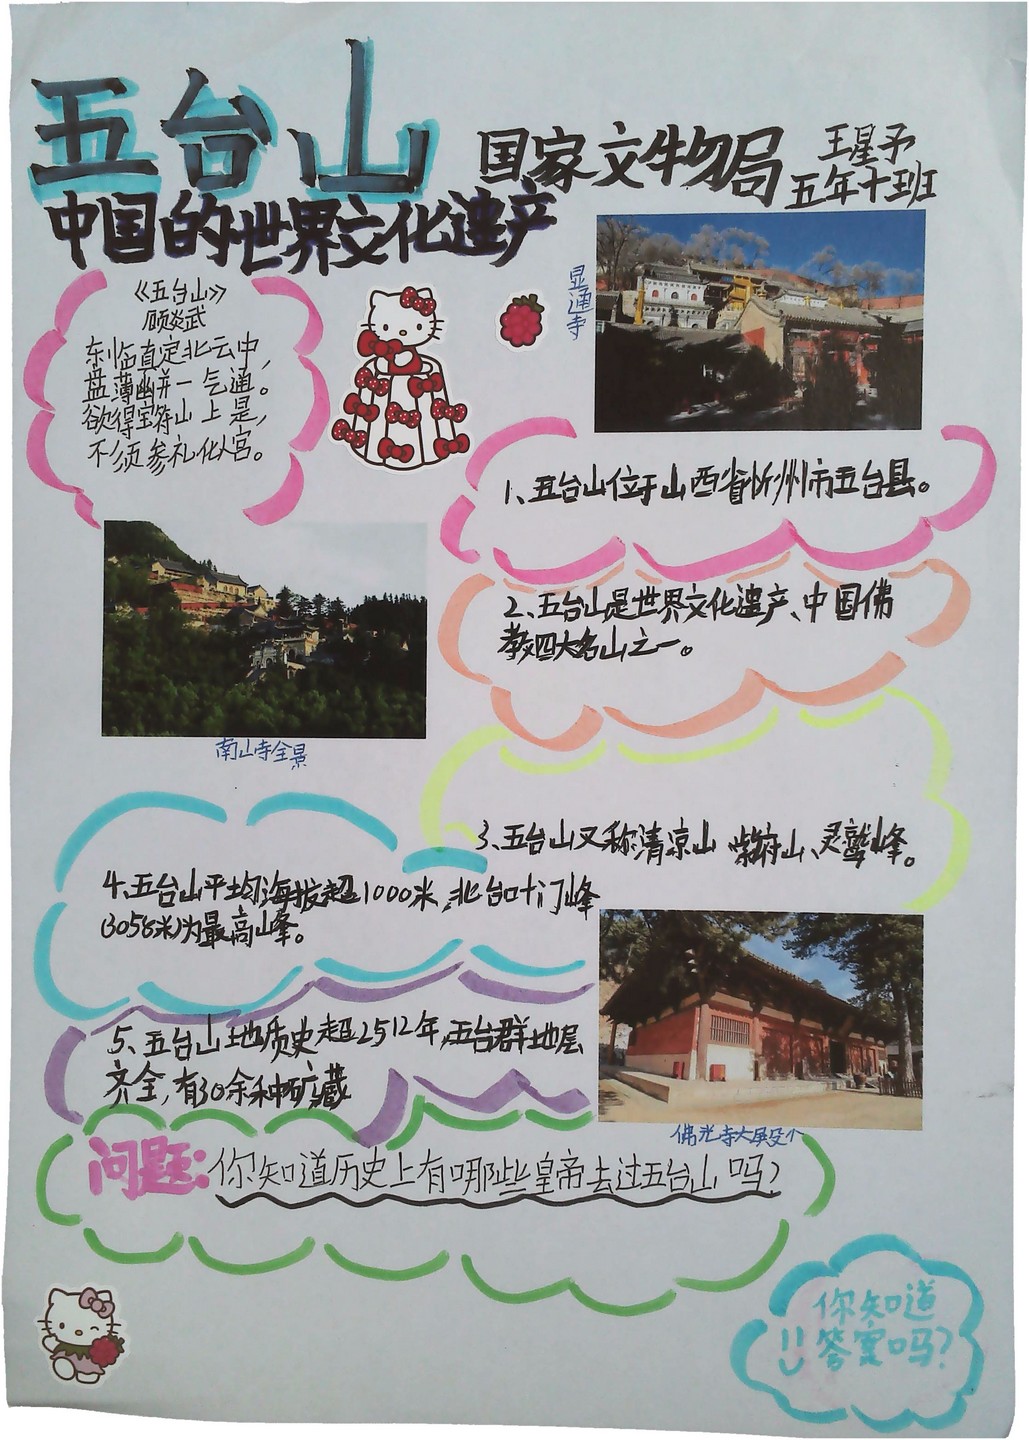 五台山
国家文物局
王星予
五年十班
中国的世界文化遗产
《五台山》
顾炎武
东临真定北云中，
盘薄幽并一气通。
欲得宝符山上是，
不须参礼化人宫。
显通寺
1、五台山位于山西省忻州市五台县。
2、五台山是世界文化遗产、中国佛
教四大名山之一。
南山寺全景
3、五台山又称清凉山 紫府山、灵鹫峰。
4、五台山平均海拔超1000米，北台叶门峰
(3058米)为最高峰。
5、五台山地质史超2512年，五台群地层
齐全，有30余种矿藏
佛光寺大殿
问题：你知道历史上有哪些皇帝去过五台山吗？
你知道
答案吗？